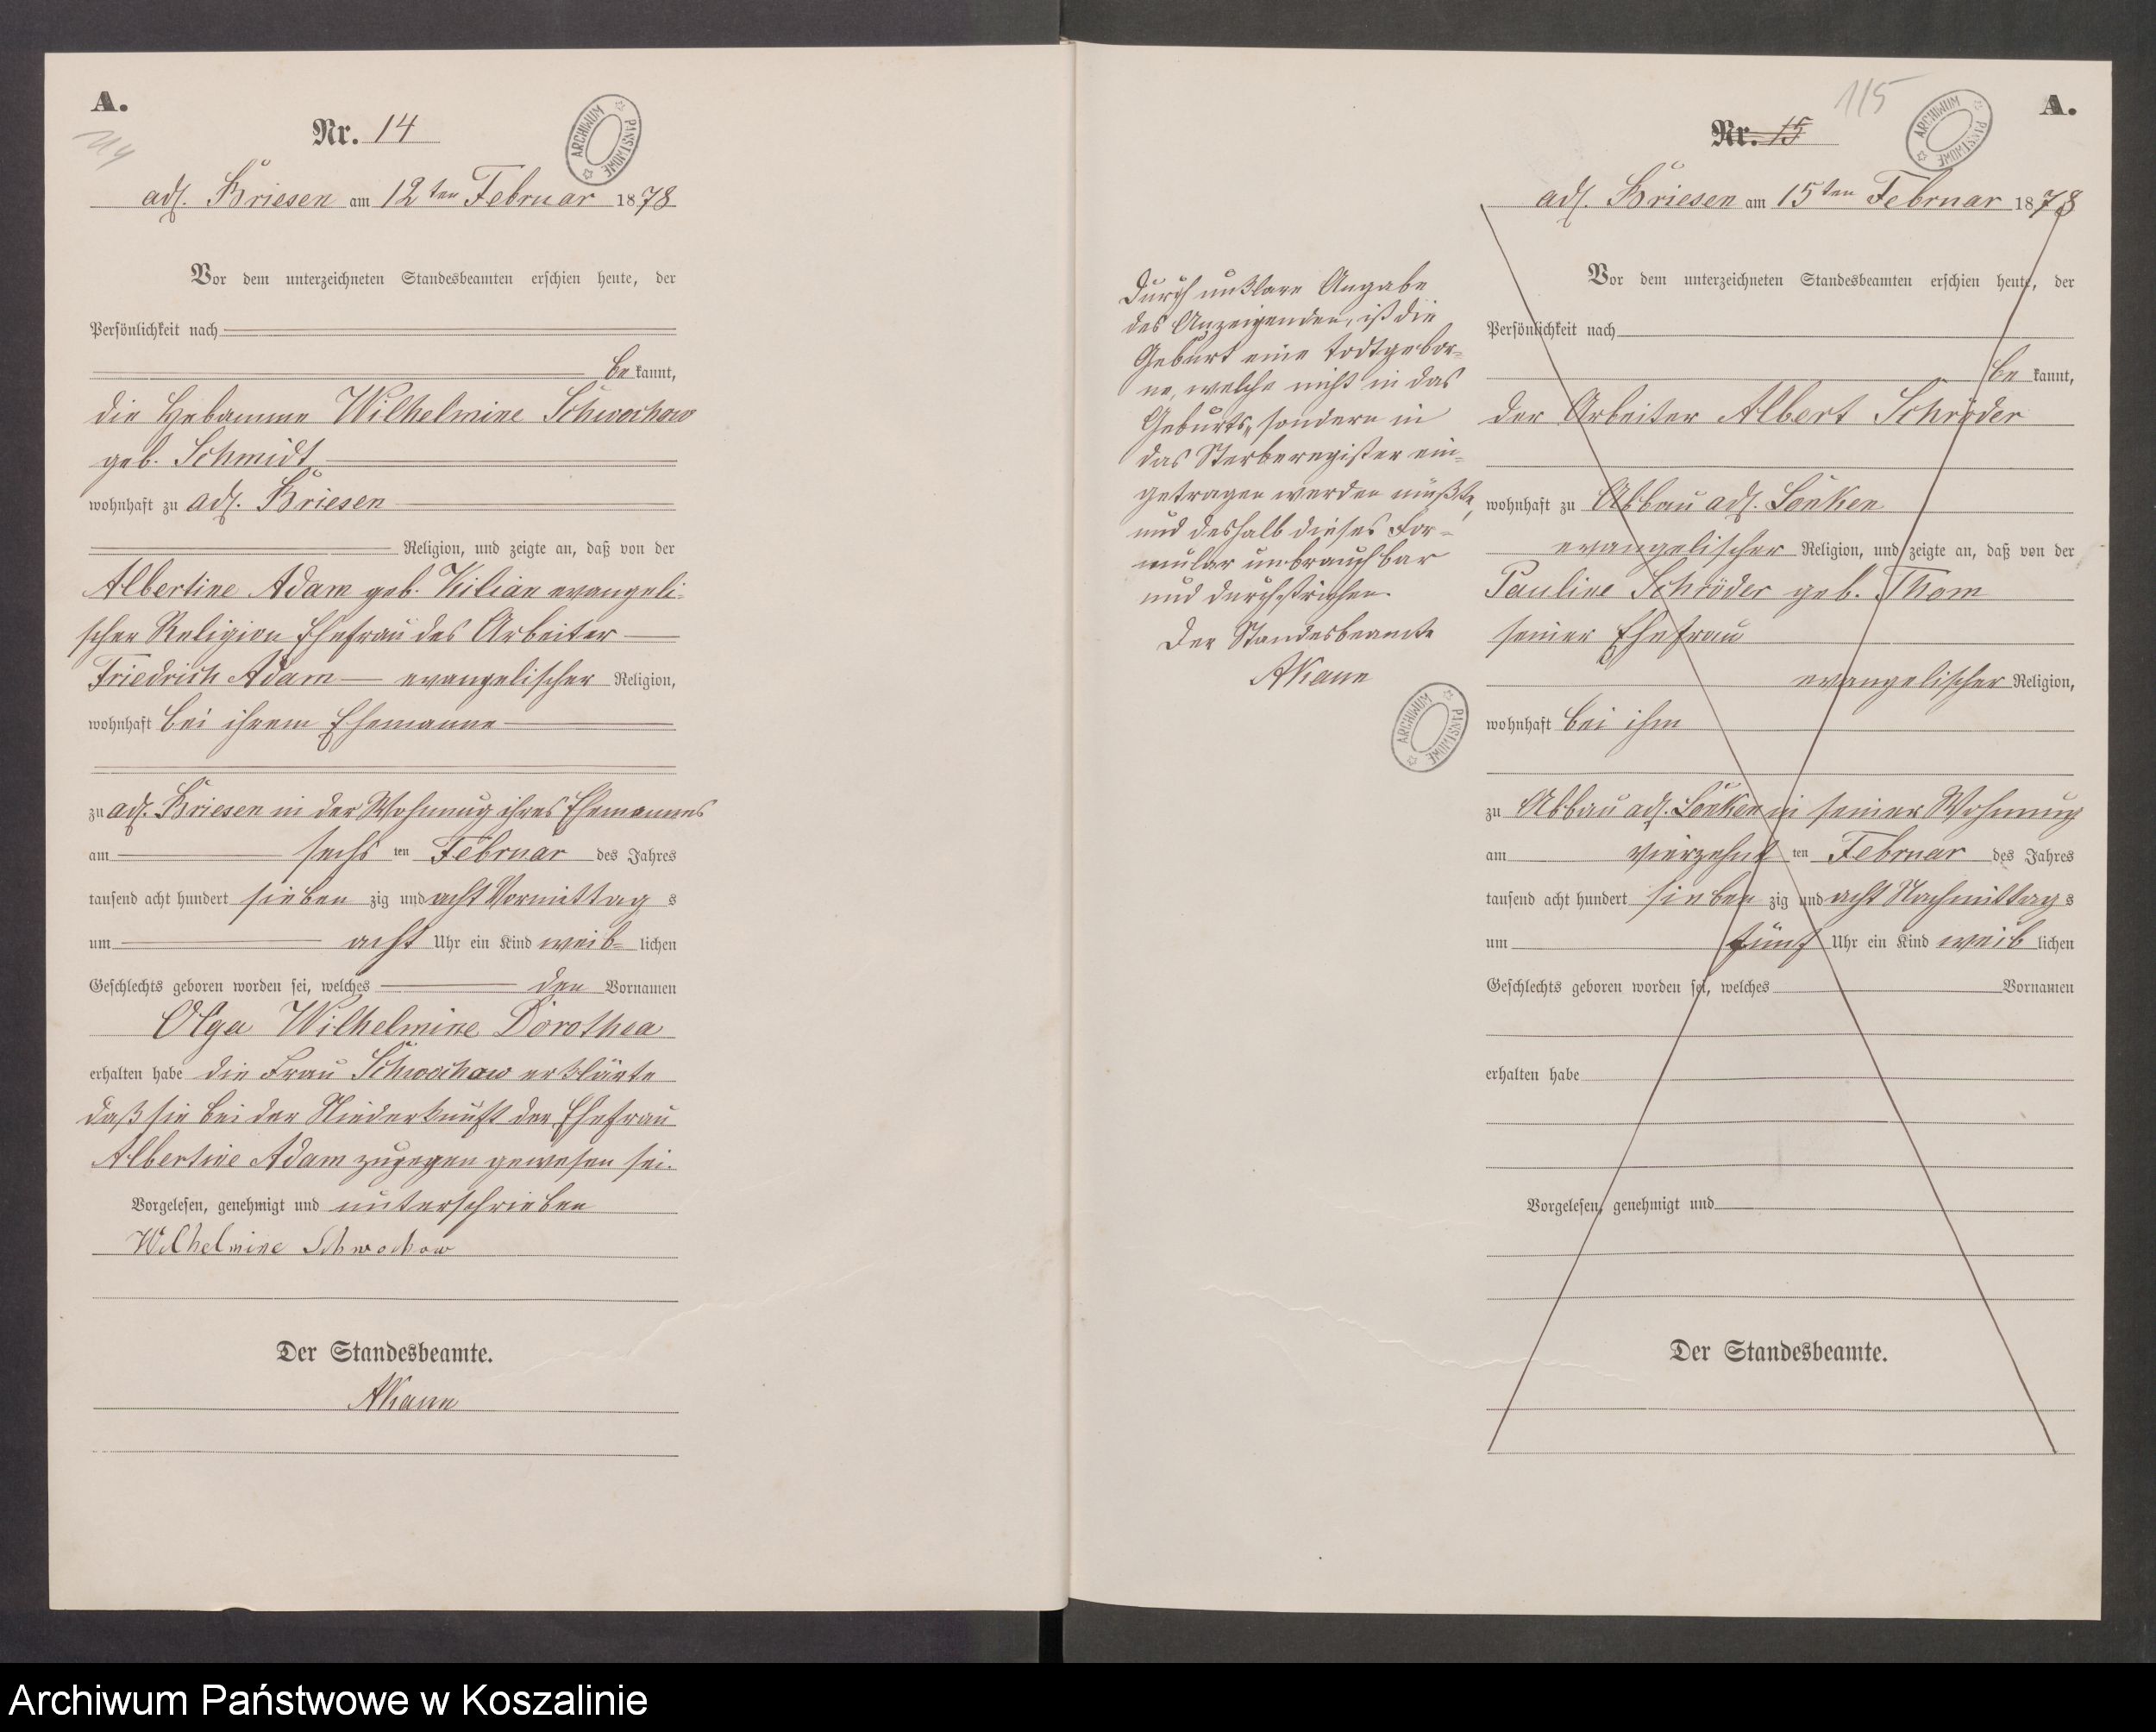 A.
114
Nr. 14
ARCHIWUM PAŃSTWOWE
adl. Briesen am 12ten Februar 1878
Vor dem unterzeichneten Standesbeamten erschien heute, der
Persönlichkeit nach
be kannt,
die Hebamme Wilhelmine Schwochow
geb. Schmidt
wohnhaft zu adl. Briesen
Religion, und zeigte an, daß von der
Albertine Adam geb. Kilian evangeli-
scher Religion Ehefrau des Arbeiter
Friedrich Adam evangelischer Religion,
wohnhaft bei ihrem Ehemanne
zu adl. Briesen in der Wohnung ihres Ehemannes
am sechs ten Februar des Jahres
tausend acht hundert sieben zig und acht Vormittag s
um acht Uhr ein Kind weib- lichen
Geschlechts geboren worden sei, welches den Vornamen
Olga Wilhelmine Dorothea
erhalten habe die Frau Schwochow erklärte
daß sie bei der Niederkunft der Ehefrau
Albertine Adam zugegen gewesen sei.
Vorgelesen, genehmigt und unterschrieben
Wilhelmine Schwochow
Der Standesbeamte.
AKann
115
A.
Nr. 15
ARCHIWUM PAŃSTWOWE
adl. Briesen am 15ten Februar 1878
Durch unklare Angabe
des Anzeigenden, ist die
Geburt eine todtgebor-
ne, welche nicht in das
Geburts, sondern in
das Sterberegister ein-
getragen werden müßte,
und deshalb dieses For-
mular unbrauchbar
und durchstrichen.
Der Standesbeamte
AKann
ARCHIWUM PAŃSTWOWE
Vor dem unterzeichneten Standesbeamten erschien heute, der
Persönlichkeit nach
be kannt,
der Arbeiter Albert Schröder
wohnhaft zu Abbau adl. Lonken
evangelischer Religion, und zeigte an, daß von der
Pauline Schröder geb. Thom
seiner Ehefrau
evangelischer Religion,
wohnhaft bei ihm
zu Abbau adl. Lonken in seiner Wohnung
am vierzehn ten Februar des Jahres
tausend acht hundert sieben zig und acht Nachmittag s
um fünf Uhr ein Kind weib lichen
Geschlechts geboren worden sei, welches Vornamen
erhalten habe
Vorgelesen, genehmigt und
Der Standesbeamte.
Archiwum Państwowe w Koszalinie